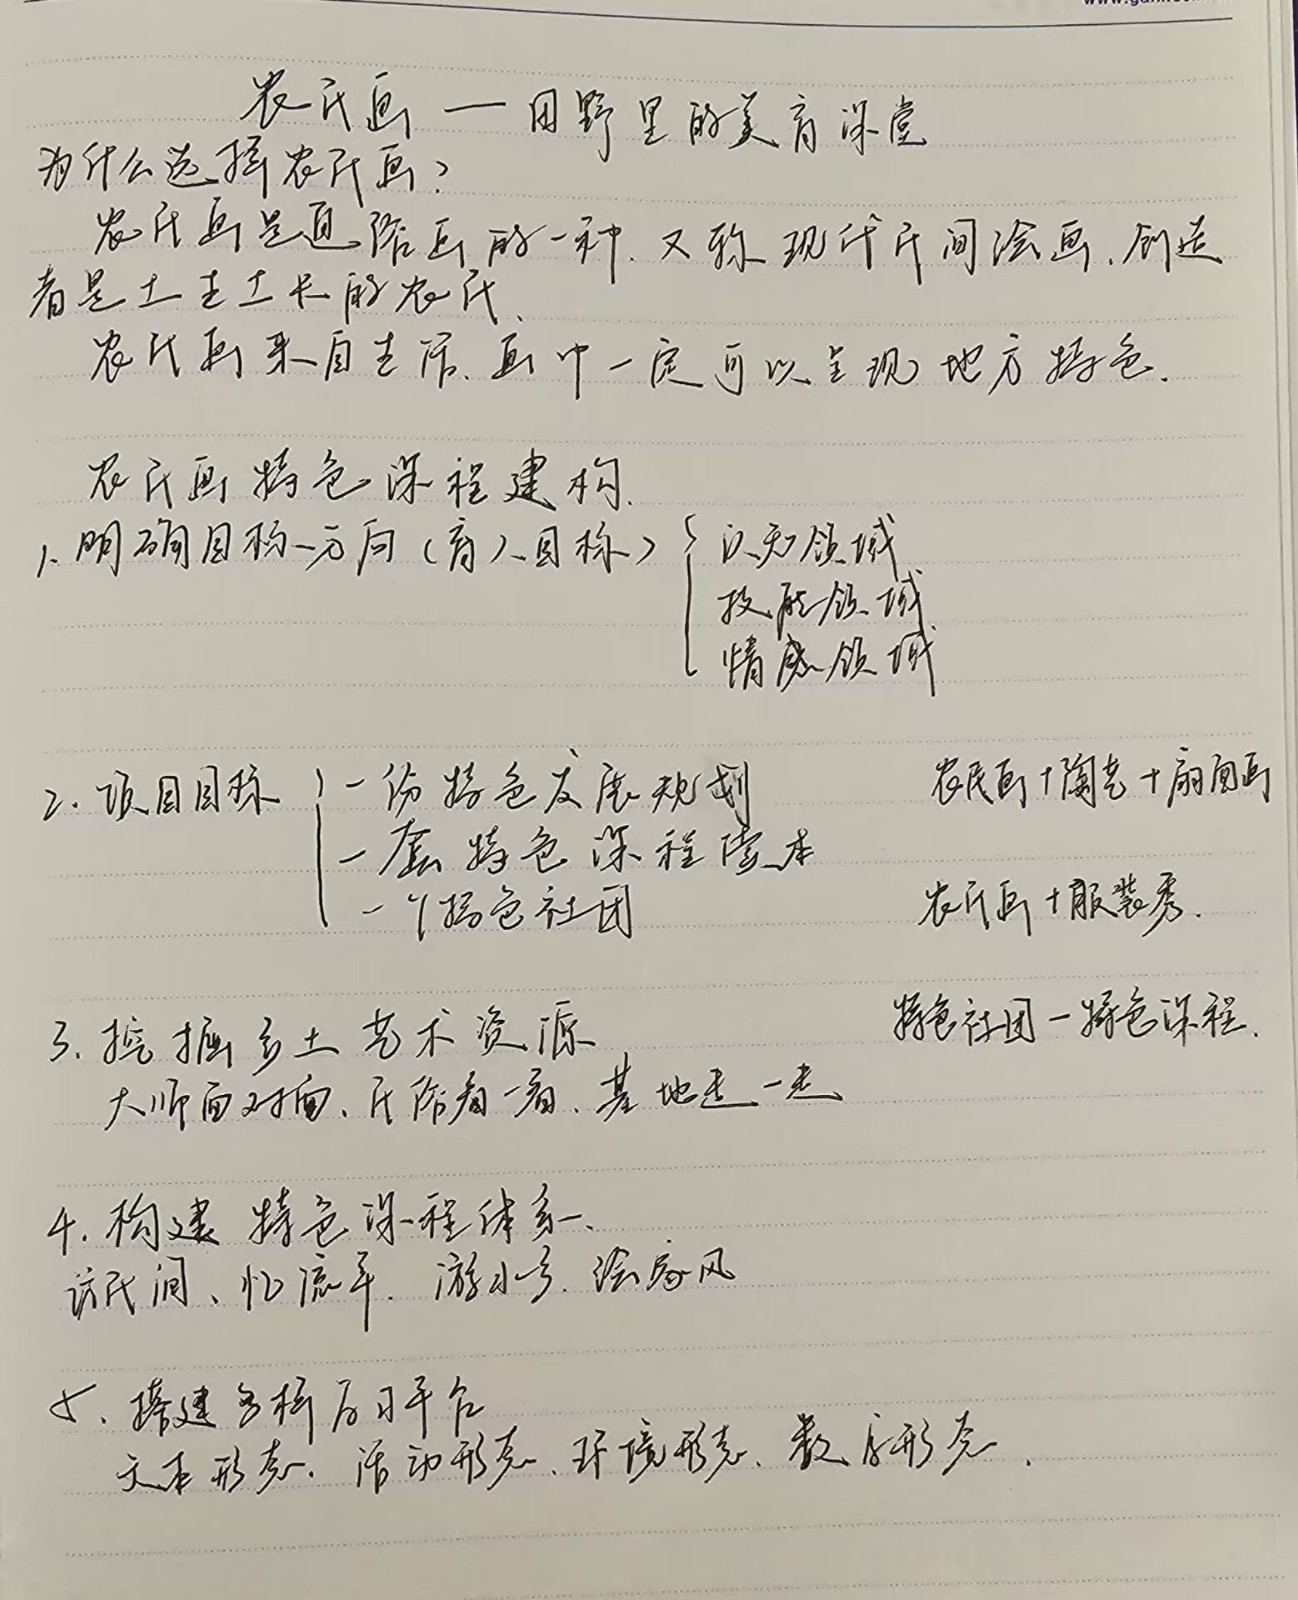 农民画 — 田野里的美育课堂
为什么选择农民画?
农民画是通俗画的一种、又称现代民间绘画、创造
者是土生土长的农民、
农民画来自生活、画中一定可以呈现地方特色.
农民画特色课程建构.
1、明确目标一方向(育人目标) { 认知领域
技能领域
情感领域
2. 项目目标 { 一份特色发展规划
一套特色课程读本
一个特色社团
农民画+陶艺+扇面画
农民画+服装秀.
特色社团 — 特色课程.
3. 挖掘乡土艺术资源
大师面对面、民俗看一看、基地走一走
4. 构建特色课程体系、
访民间、忆流年. 游水乡. 绘家风
5、搭建多样展习平台
文本形态、活动形态、环境形态、数字形态、